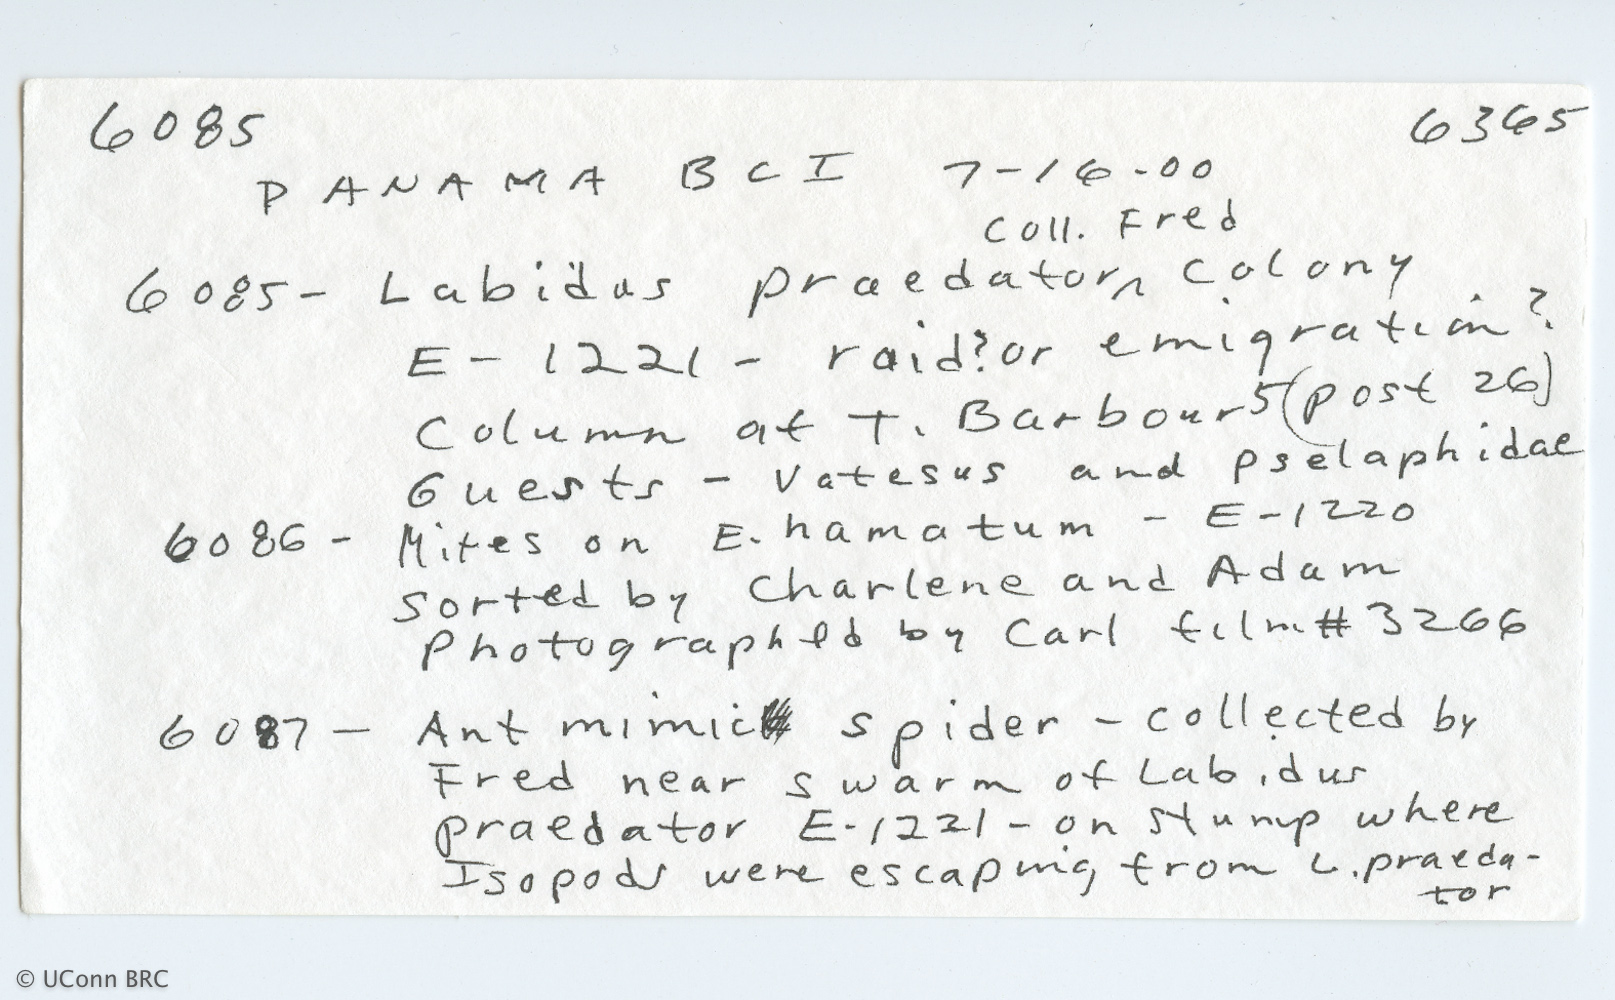 6085 6365
PANAMA BCI 7-16-00
Coll. Fred
6085- Labidus praedator, Colony
E-1221- raid? or emigration?
Column at T. Barbour 5 (post 26)
Guests - Vatesus and pselaphidae
6086- Mites on E. hamatum - E-1220
sorted by Charlene and Adam
Photographed by Carl film# 3266
6087- Ant mimic spider - collected by
Fred near swarm of Labidus
praedator E-1221- on stump where
Isopods were escaping from L. praeda-
tor
© UConn BRC